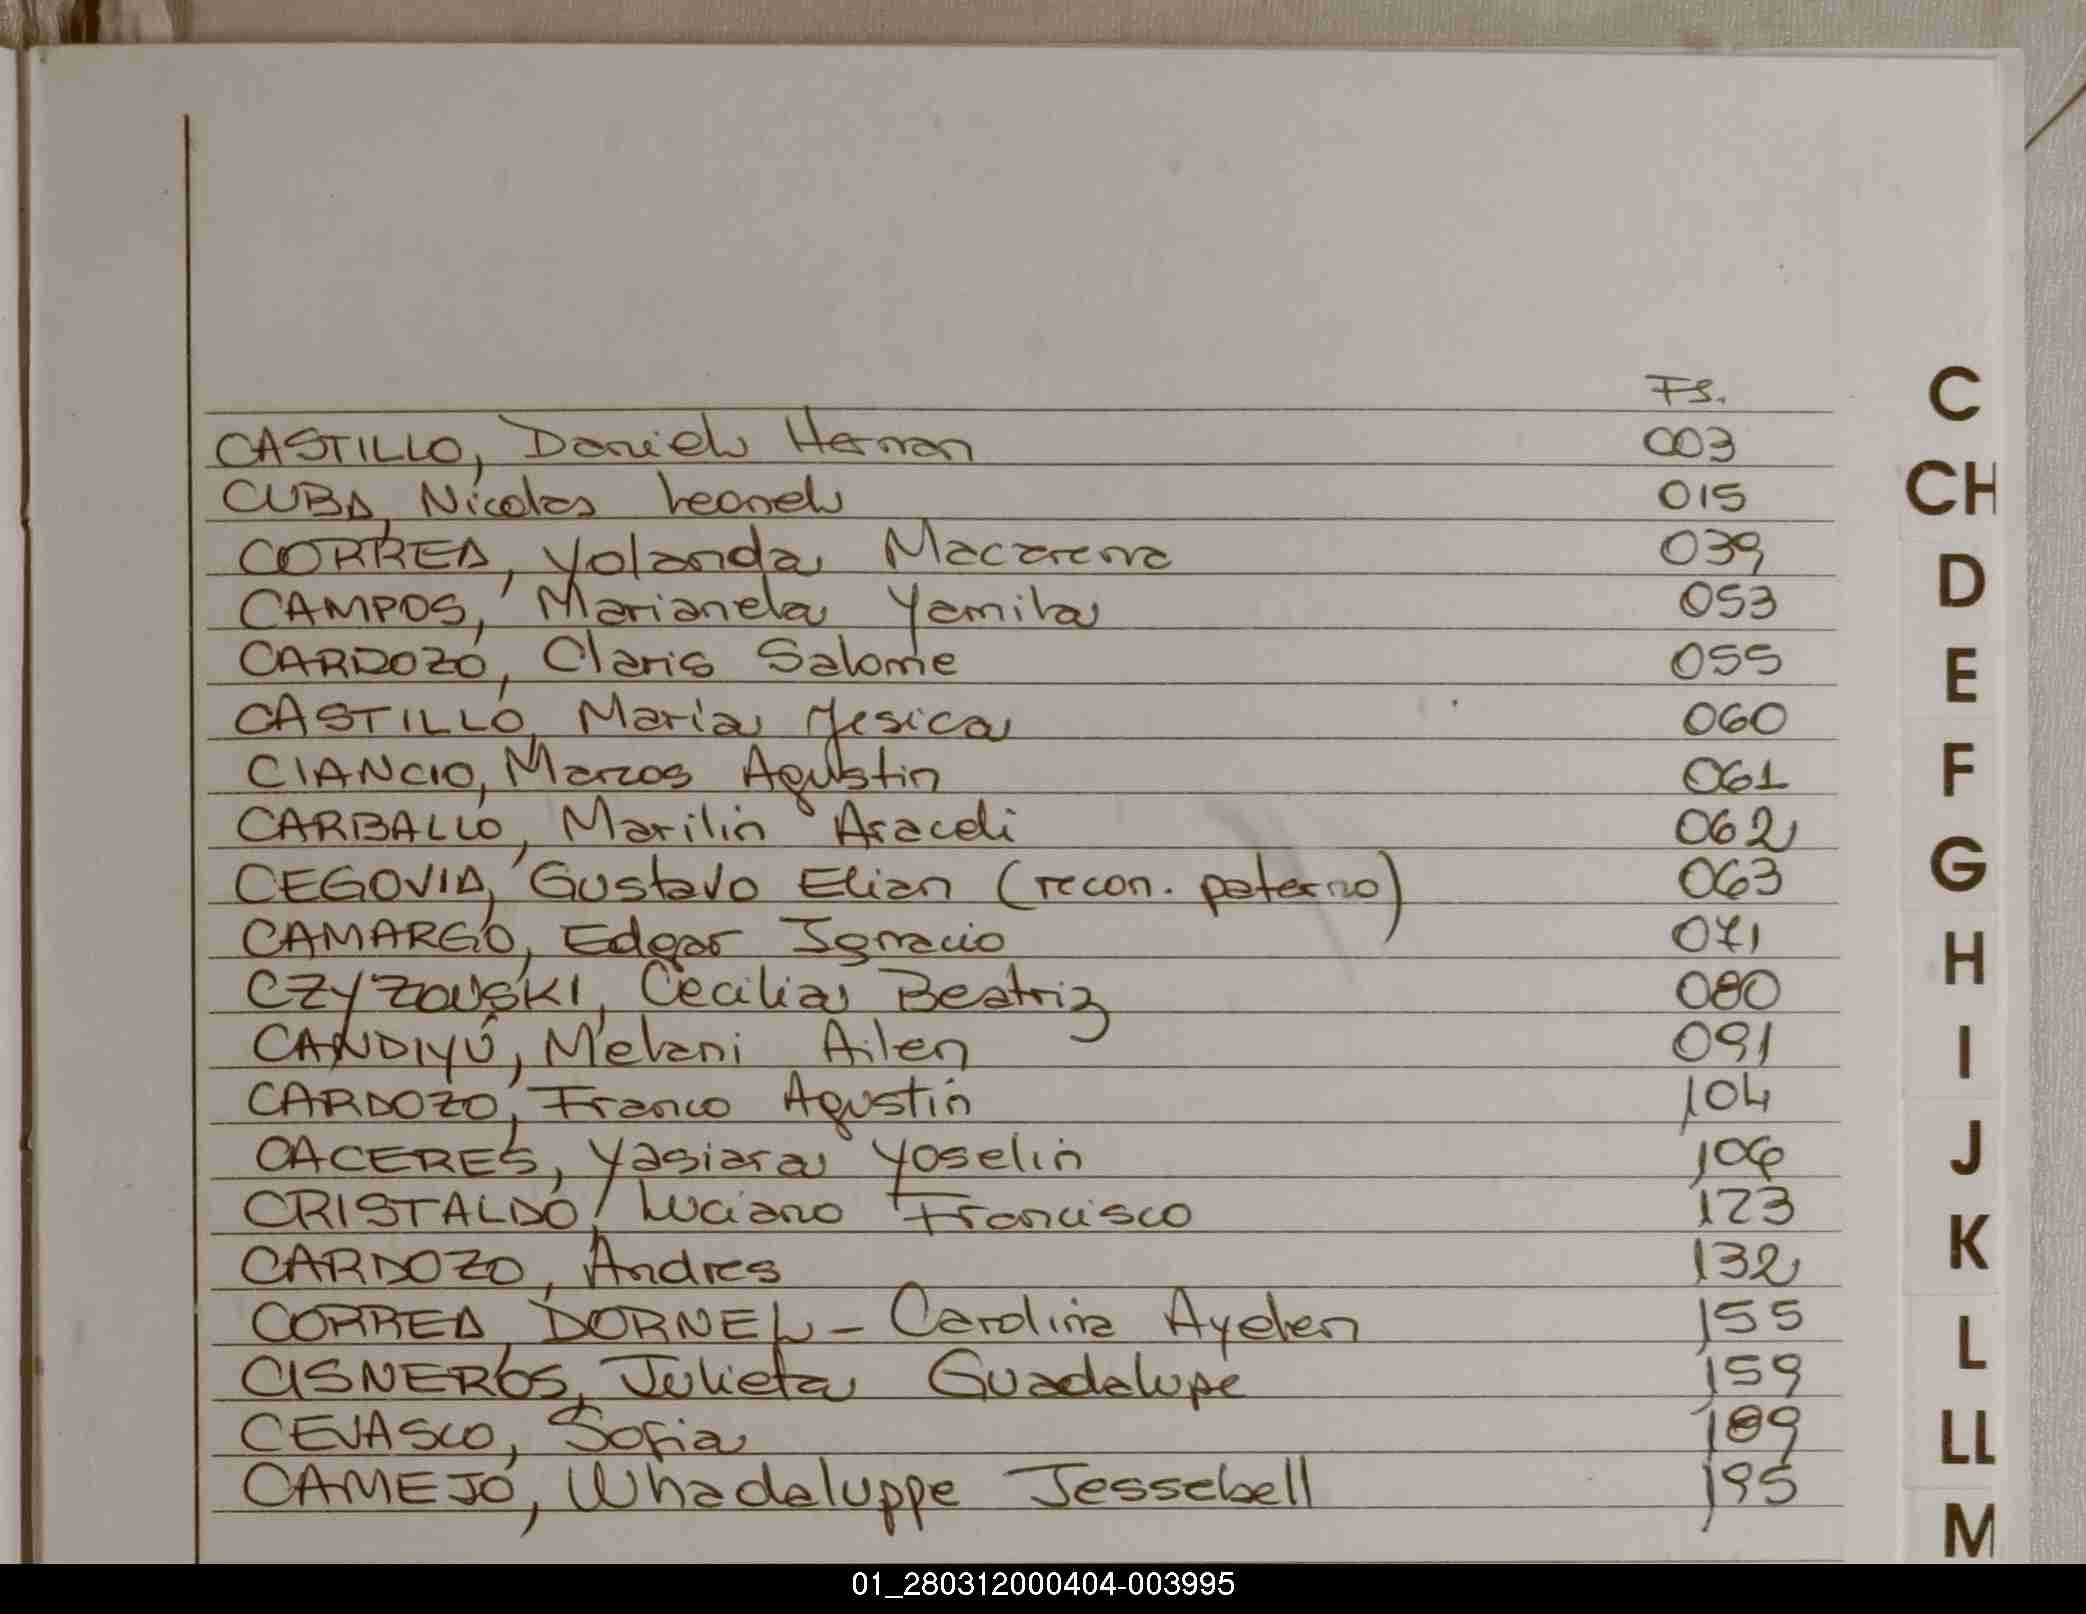 Fs.
CASTILLO, Daniel Hernan 003
CUBA, Nicolas Leonel 015
CORREA, Yolanda Macarena 039
CAMPOS, Marianela Yamila 053
CARDOZO, Claris Salome 055
CASTILLO, Maria Yesica 060
CIANCIO, Marcos Agustin 061
CARBALLO, Marilin Araceli 062
CEGOVIA, Gustavo Elian (recon. paterno) 063
CAMARGO, Edgar Ignacio 071
CZYZOUSKI, Cecilia Beatriz 080
CANDIYÚ, Melani Ailen 091
CARDOZO, Franco Agustin 104
CACERES, Yasiara Yoselin 106
CRISTALDO, Luciano Francisco 123
CARDOZO, Andres 132
CORREA, DORNEL - Carolina Ayelen 155
CISNEROS, Julieta Guadalupe 159
CEVASCO, Sofia 189
CAMEJO, Whadaluppe Jessebell 195
C
CH
D
E
F
G
H
I
J
K
L
LL
M
01_280312000404-003995